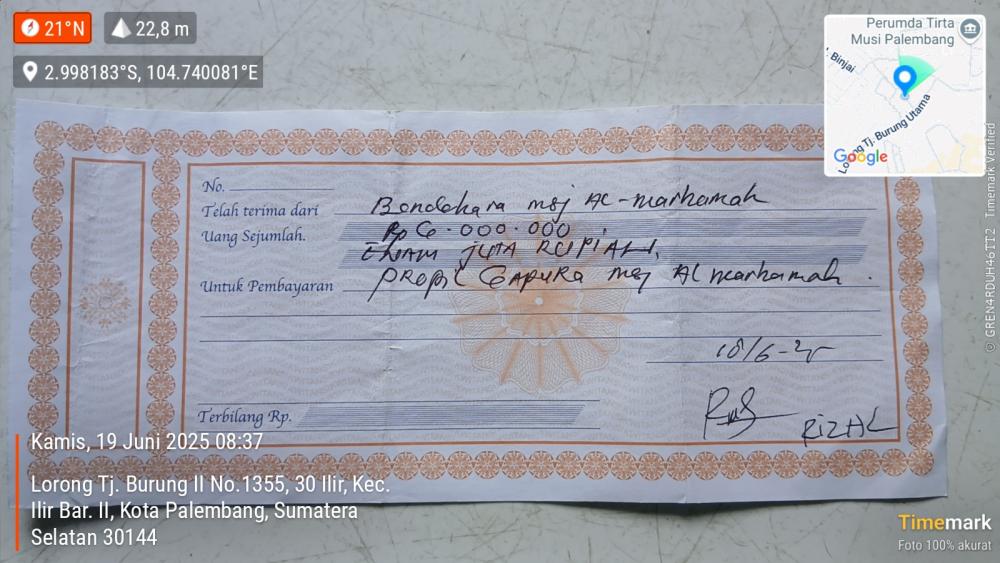 21°N
22,8 m
2.998183°S, 104.740081°E
Perumda Tirta
Musi Palembang
Binjai
Lorong Tj. Burung Utama
Google
No.
Telah terima dari Bendahara msj AL-marhamah
Uang Sejumlah. Rp 6.000.000
ENAM JUTA RUPIAH.
Untuk Pembayaran PROFIL GAPURA msj AL marhamah.
18/6-25
Terbilang Rp.
RIZAL
Kamis, 19 Juni 2025 08:37
Lorong Tj. Burung II No.1355, 30 Ilir, Kec.
Ilir Bar. II, Kota Palembang, Sumatera
Selatan 30144
Timemark
Foto 100% akurat
© GREN4RDUH46TT2 Timemark Verified